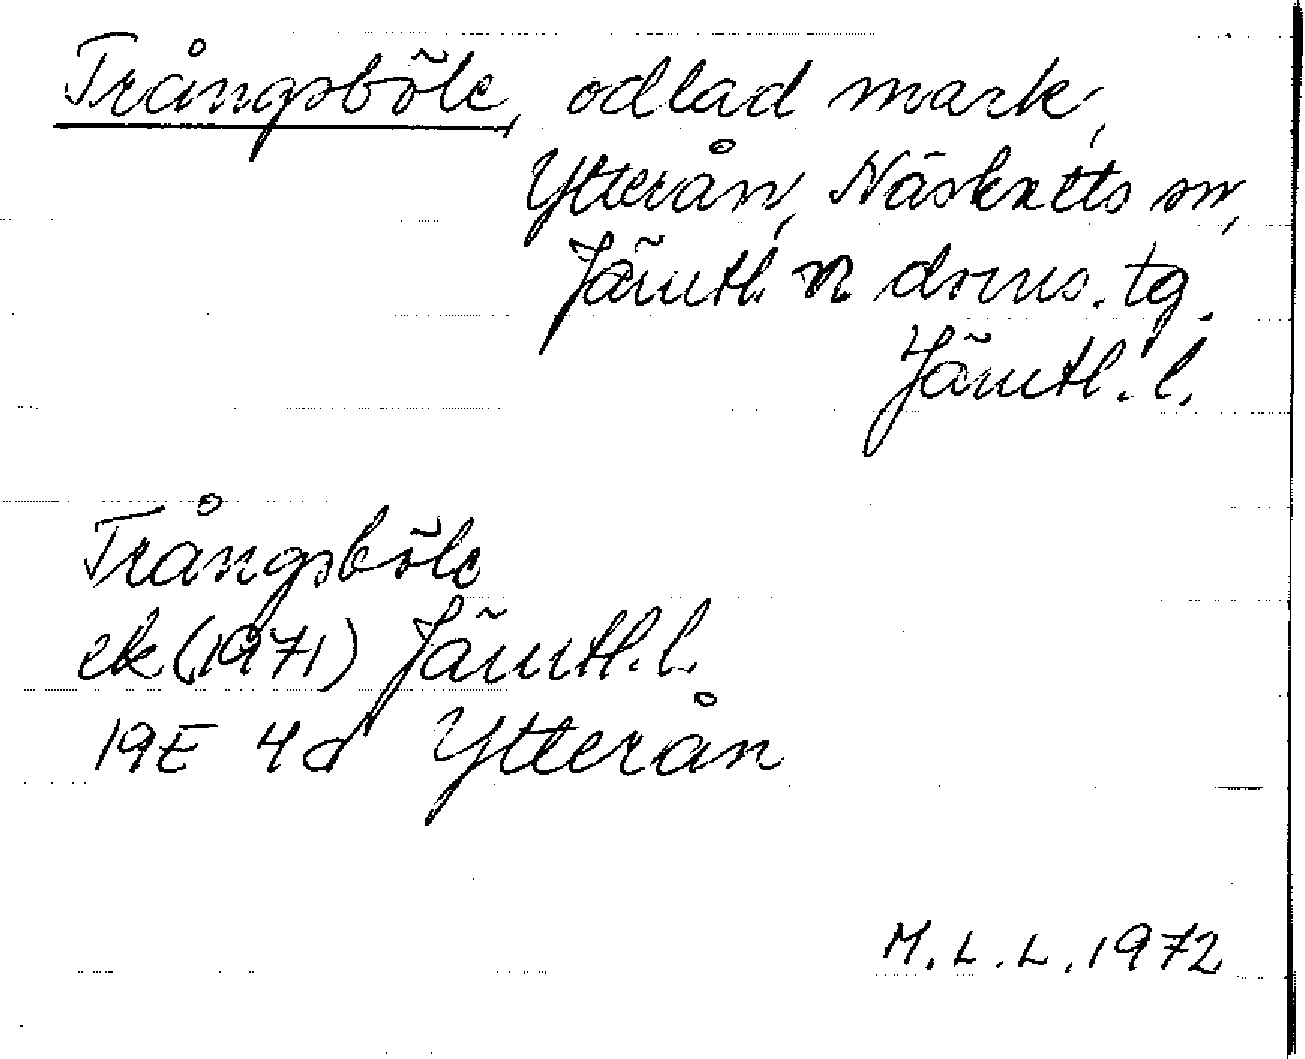 Trångsböle, odlad mark,
Ytterån, Näskotts sn,
Jämtl. n doms. tg.
Jämtl. l.
Trångsböle
ek (1971) Jämtl. l.
19E 4d Ytterån
M. L. L. 1972